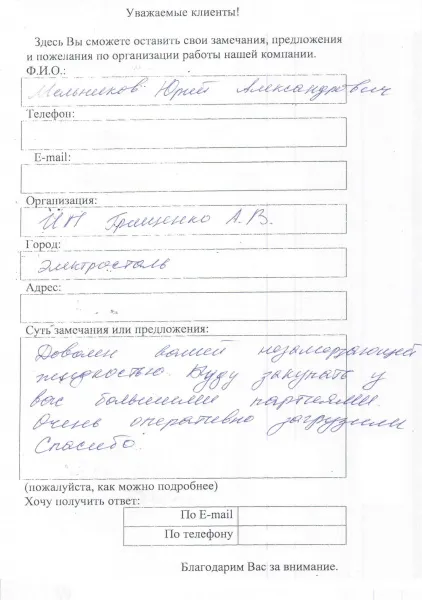 Уважаемые клиенты!
Здесь Вы сможете оставить свои замечания, предложения
и пожелания по организации работы нашей компании.
Ф.И.О.:
Мельников Юрий Александрович
Телефон:
E-mail:
Организация:
ИП Грищенко А.В.
Город:
Электросталь
Адрес:
Суть замечания или предложения:
Доволен вашей незамерзающей
жидкостью. Буду закупать у
вас большими партиями.
Очень оперативно загрузили.
Спасибо.
(пожалуйста, как можно подробнее)
Хочу получить ответ:
По E-mail
По телефону
Благодарим Вас за внимание.